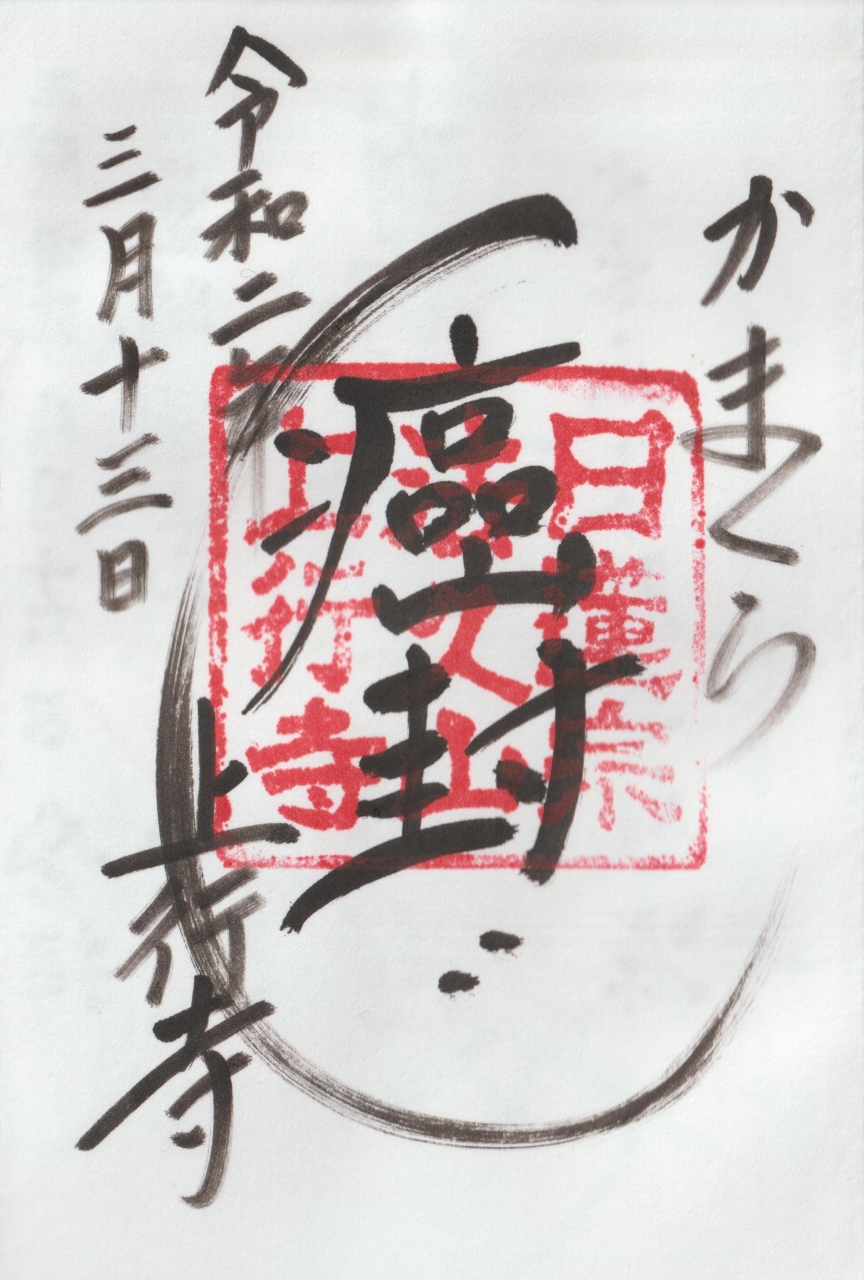 かまくら
癌封
日蓮宗
法久山
上行寺
令和二年
三月十三日
上行寺